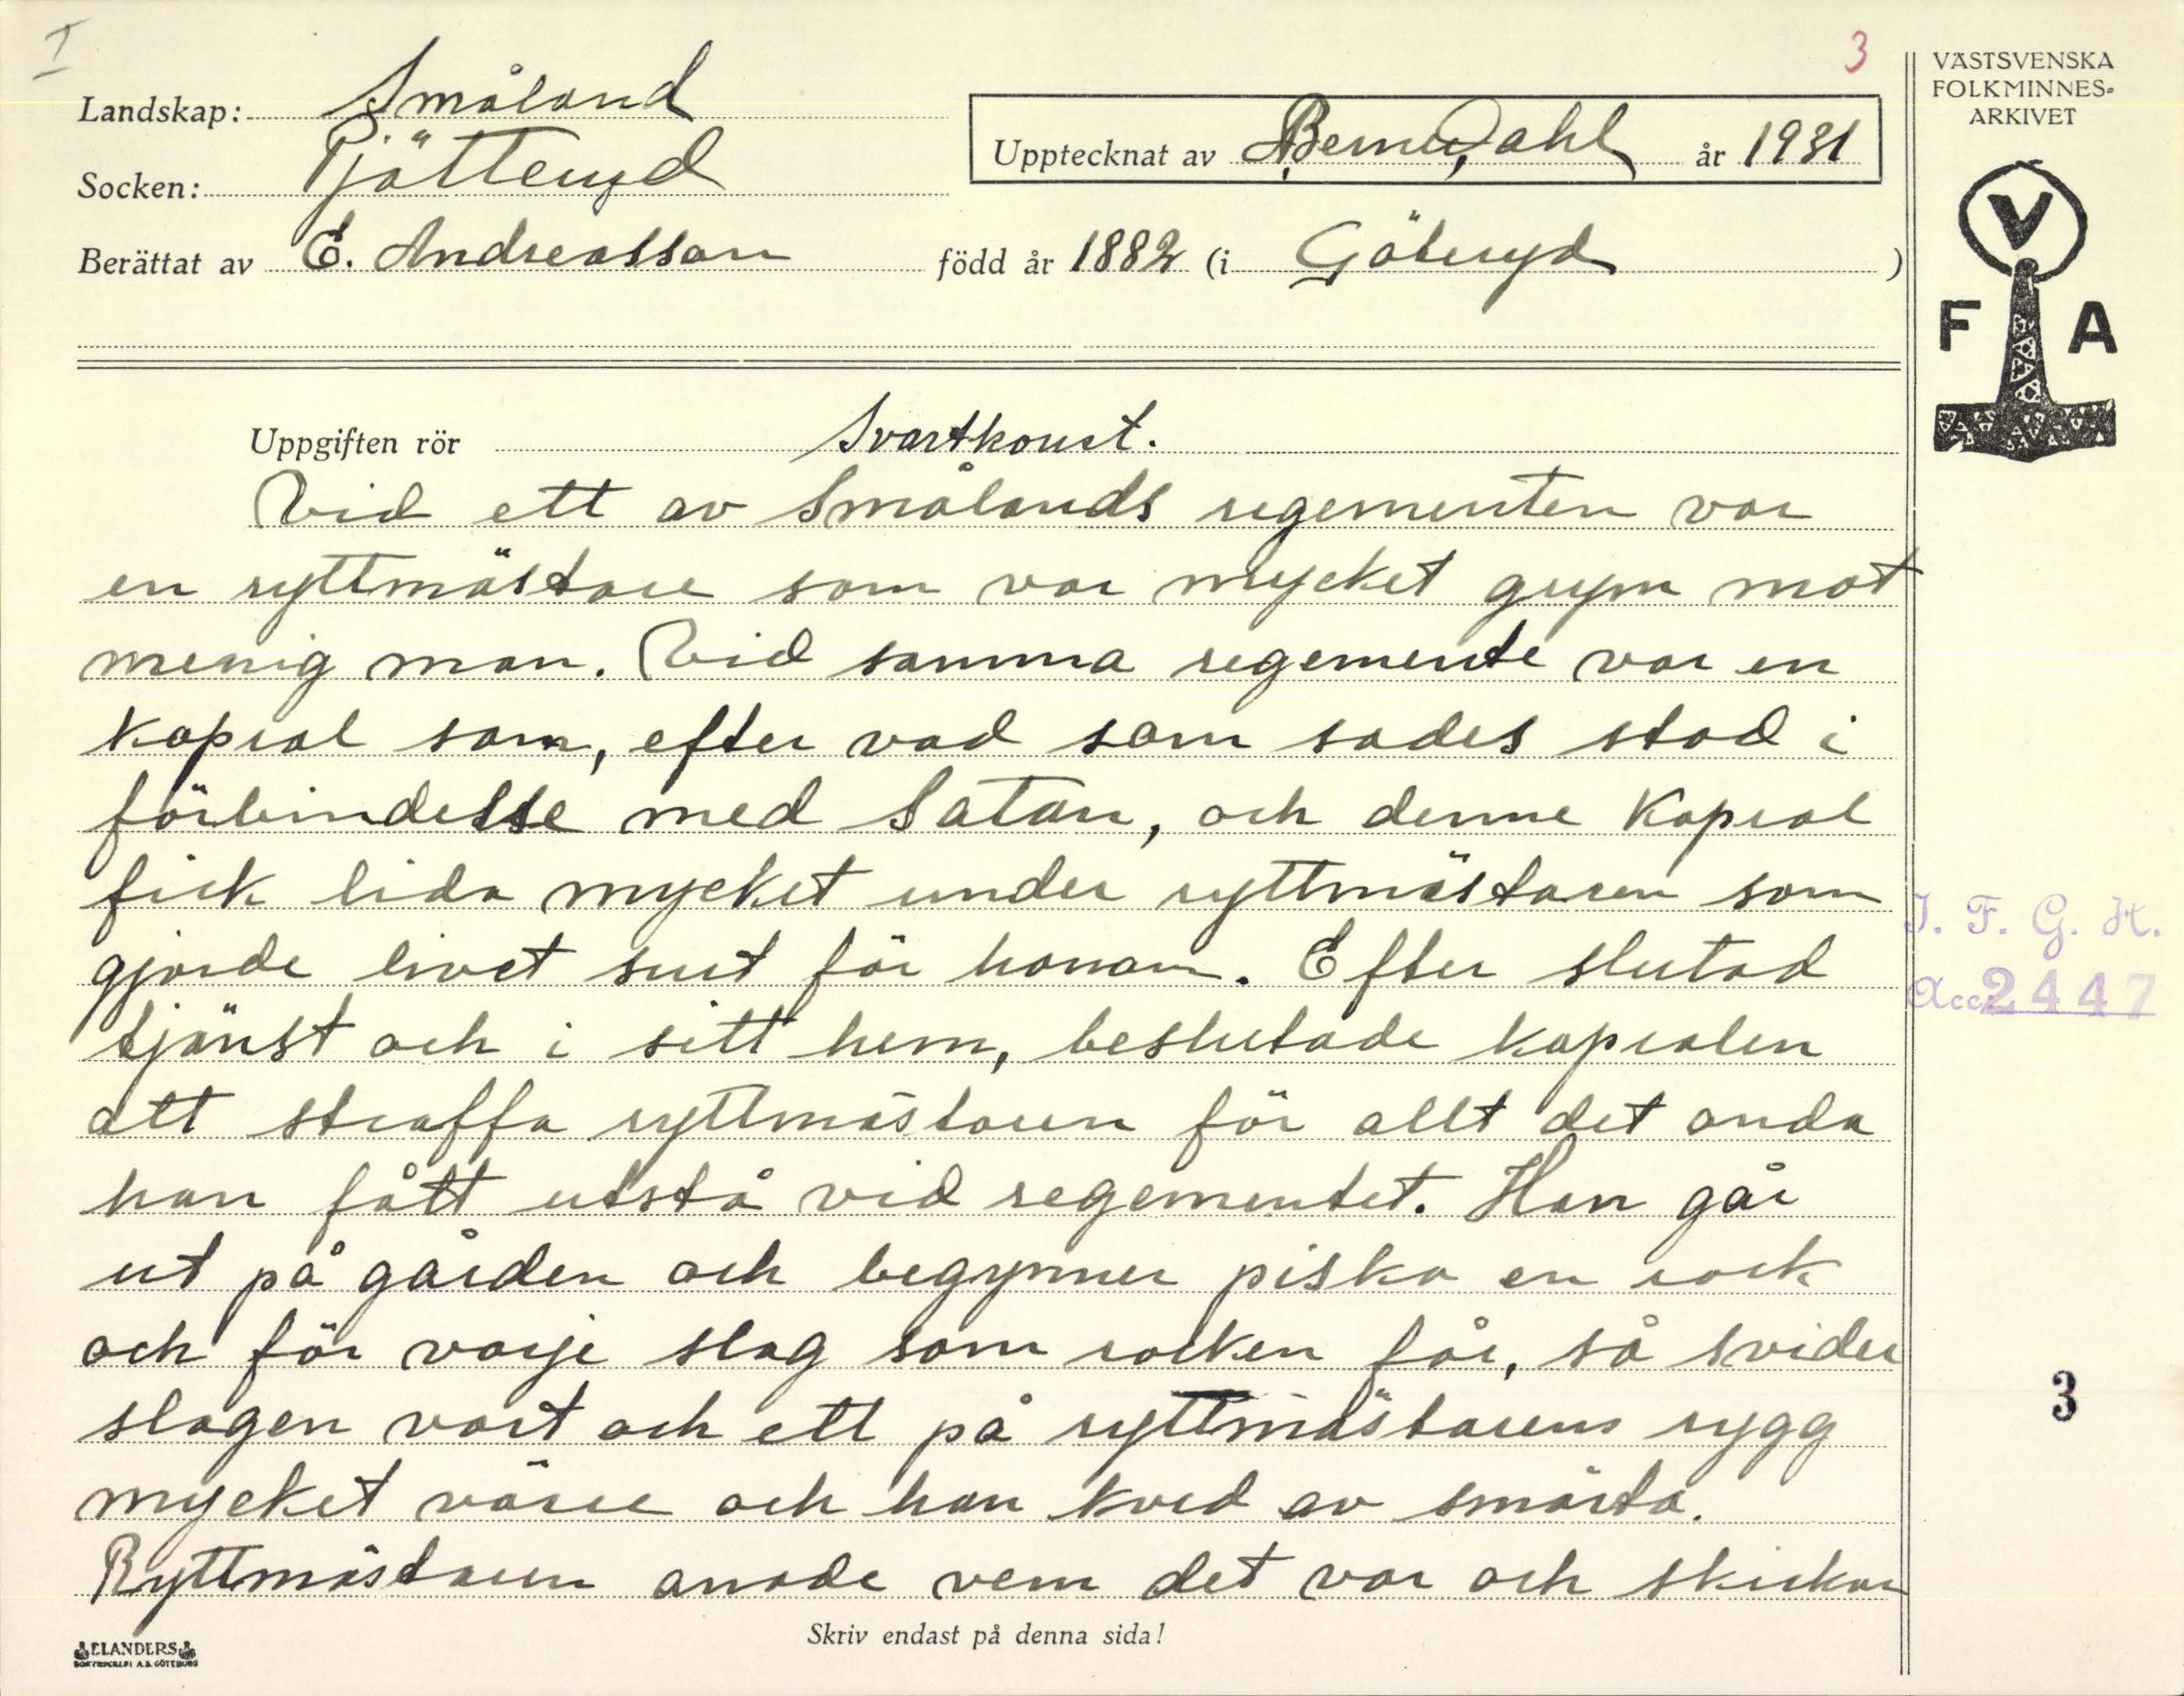 I
3
Landskap: Småland
Socken: Pjätteryd
Upptecknat av A. Bernh. Dahl år 1931
Berättat av E. Andreasson född år 1882 (i Göteryd )
VÄSTSVENSKA
FOLKMINNES-
ARKIVET
V
F A
Uppgiften rör Svartkonst.
Vid ett av Smålands regementen var
en ryttmästare som var mycket grym mot
menig man. Vid samma regemente var en
kapral som, efter vad som sades stod i
förbindelse med Satan, och denne kapral
fick lida mycket under ryttmästaren som
gjorde livet surt för honom. Efter slutad
tjänst och i sitt hem, beslutade kapralen
att straffa ryttmästaren för allt det onda
han fått utstå vid regementet. Han går
ut på gården och begynner piska en rock
och för varje slag som rocken får, så svider
slagen vart och ett på ryttmästarens rygg
mycket värre och han kved av smärta.
Ryttmästaren anade vem det var och skickar
I. F. G. H.
Acc. 2447
3
Skriv endast på denna sida!
ELANDERS
BOKTRYCKERI A.B. GÖTEBORG